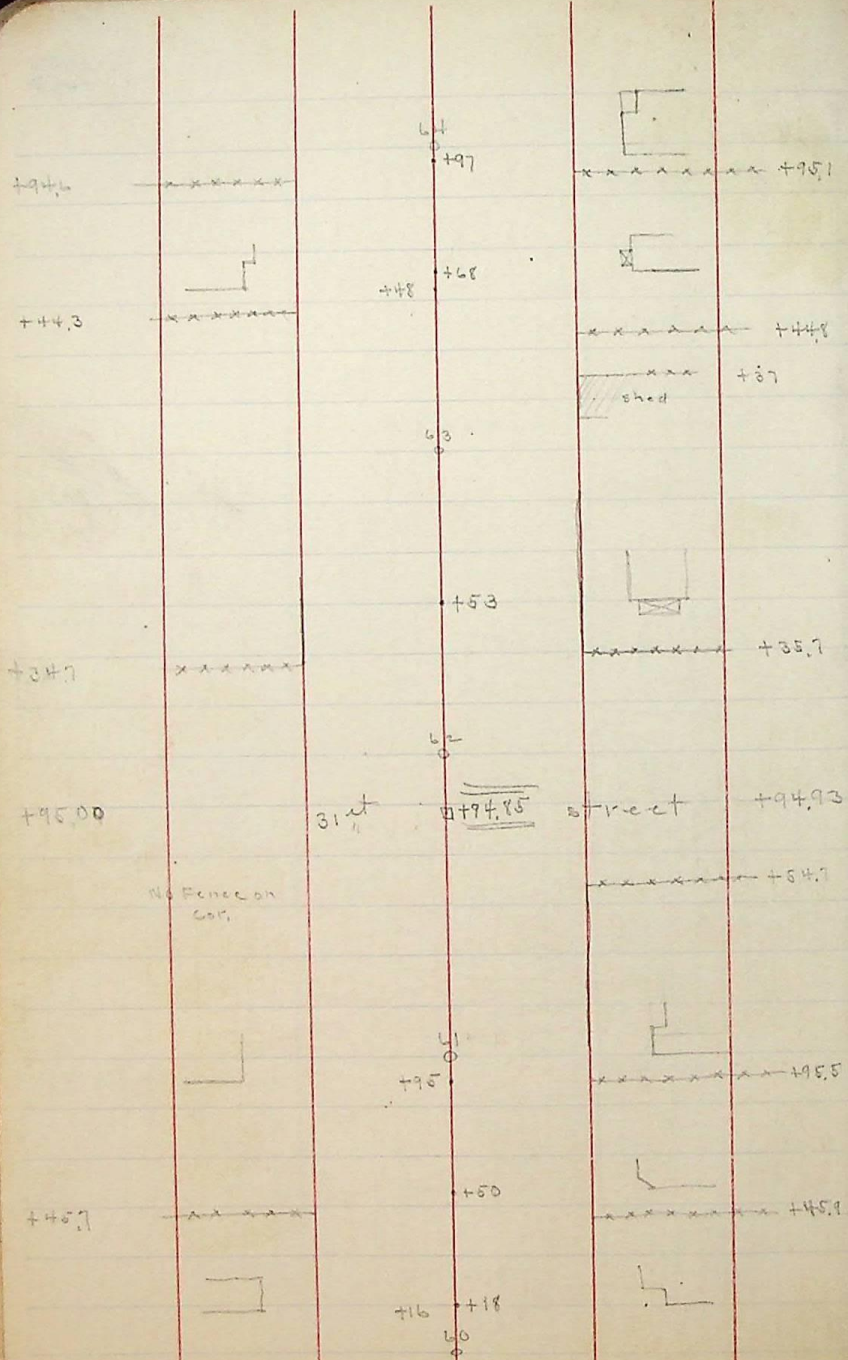 64
+97
+94.6
+95.1
+68
+48
+44.3
+44.8
+37
shed
63
+53
+35.7
+34.7
62
+95.00 31st +94.85 street +94.93
+54.7
No Fence on
cor.
61
+95
+95.5
+50
+45.7
+45.9
+16 +18
60